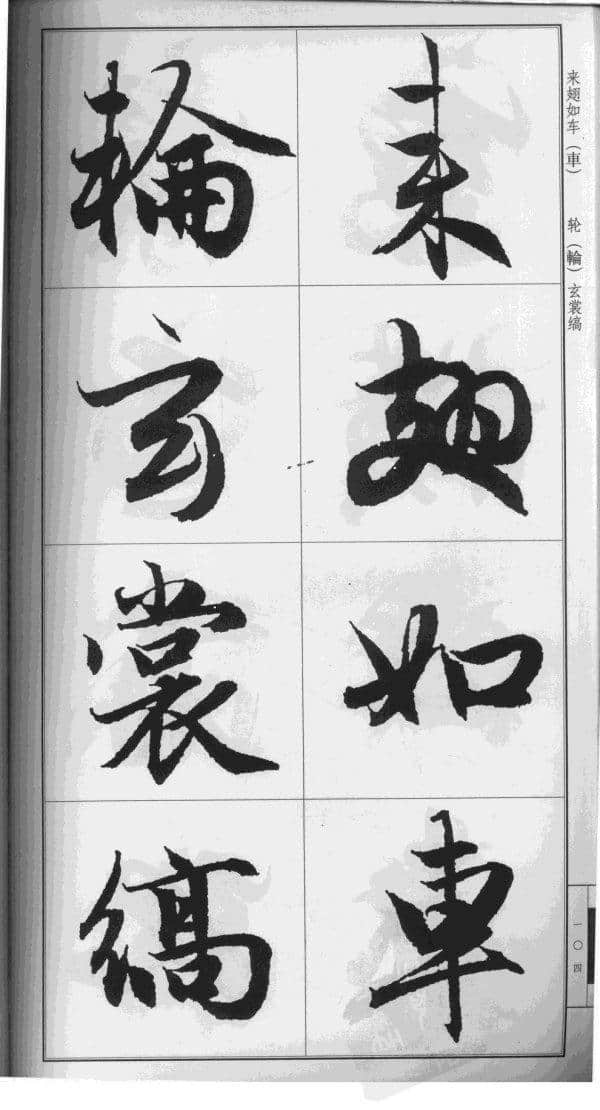 来翅如车（車）　轮（輪）玄裳缟
来翅如車
輪玄裳縞
一〇四